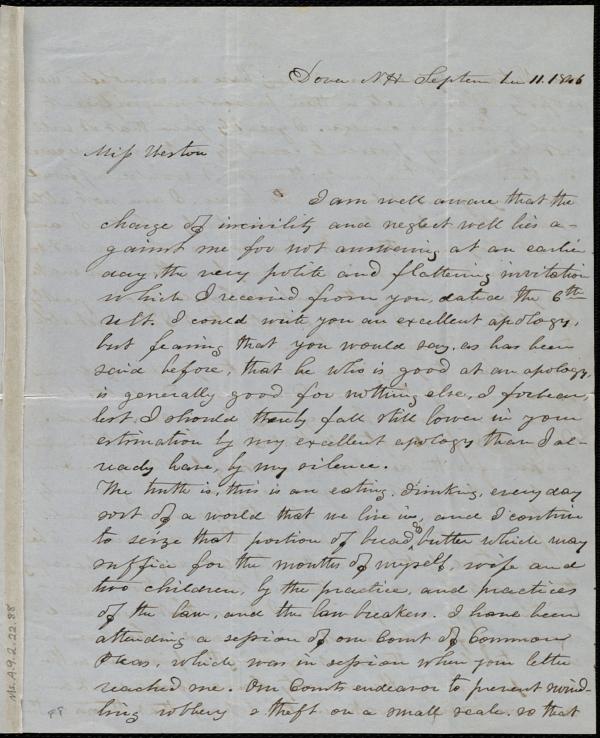 Dover N H Septem ber 11. 1846
Miss Weston
I am well aware that the
charge of incivility and neglect well lies a-
gainst me for not answering at an earlier
day, the very polite and flattering invitation
which I received from you, dated the 6th
ult. I could write you an excellent apology,
but fearing that you would say, as has been
said before, that he who is good at an apology,
is generally good for nothing else, I forbear,
lest I should thereby fall still lower in your
estimation by my excellent apology than I al-
ready have, by my silence.
The truth is, this is an eating, drinking, every day
sort of a world that we live in, and I contrive
to seize that portion of bread & butter which may
suffice for the mouths of myself, wife and
two children, by the practice, and practices
of the law, and the law breakers. I have been
attending a session of our Court of Common
Pleas, which was in session when your letter
reached me. Our Courts endeavor to prevent swind-
ling robbery & theft on a small scale, so that
Ms. A.9.2.22.88